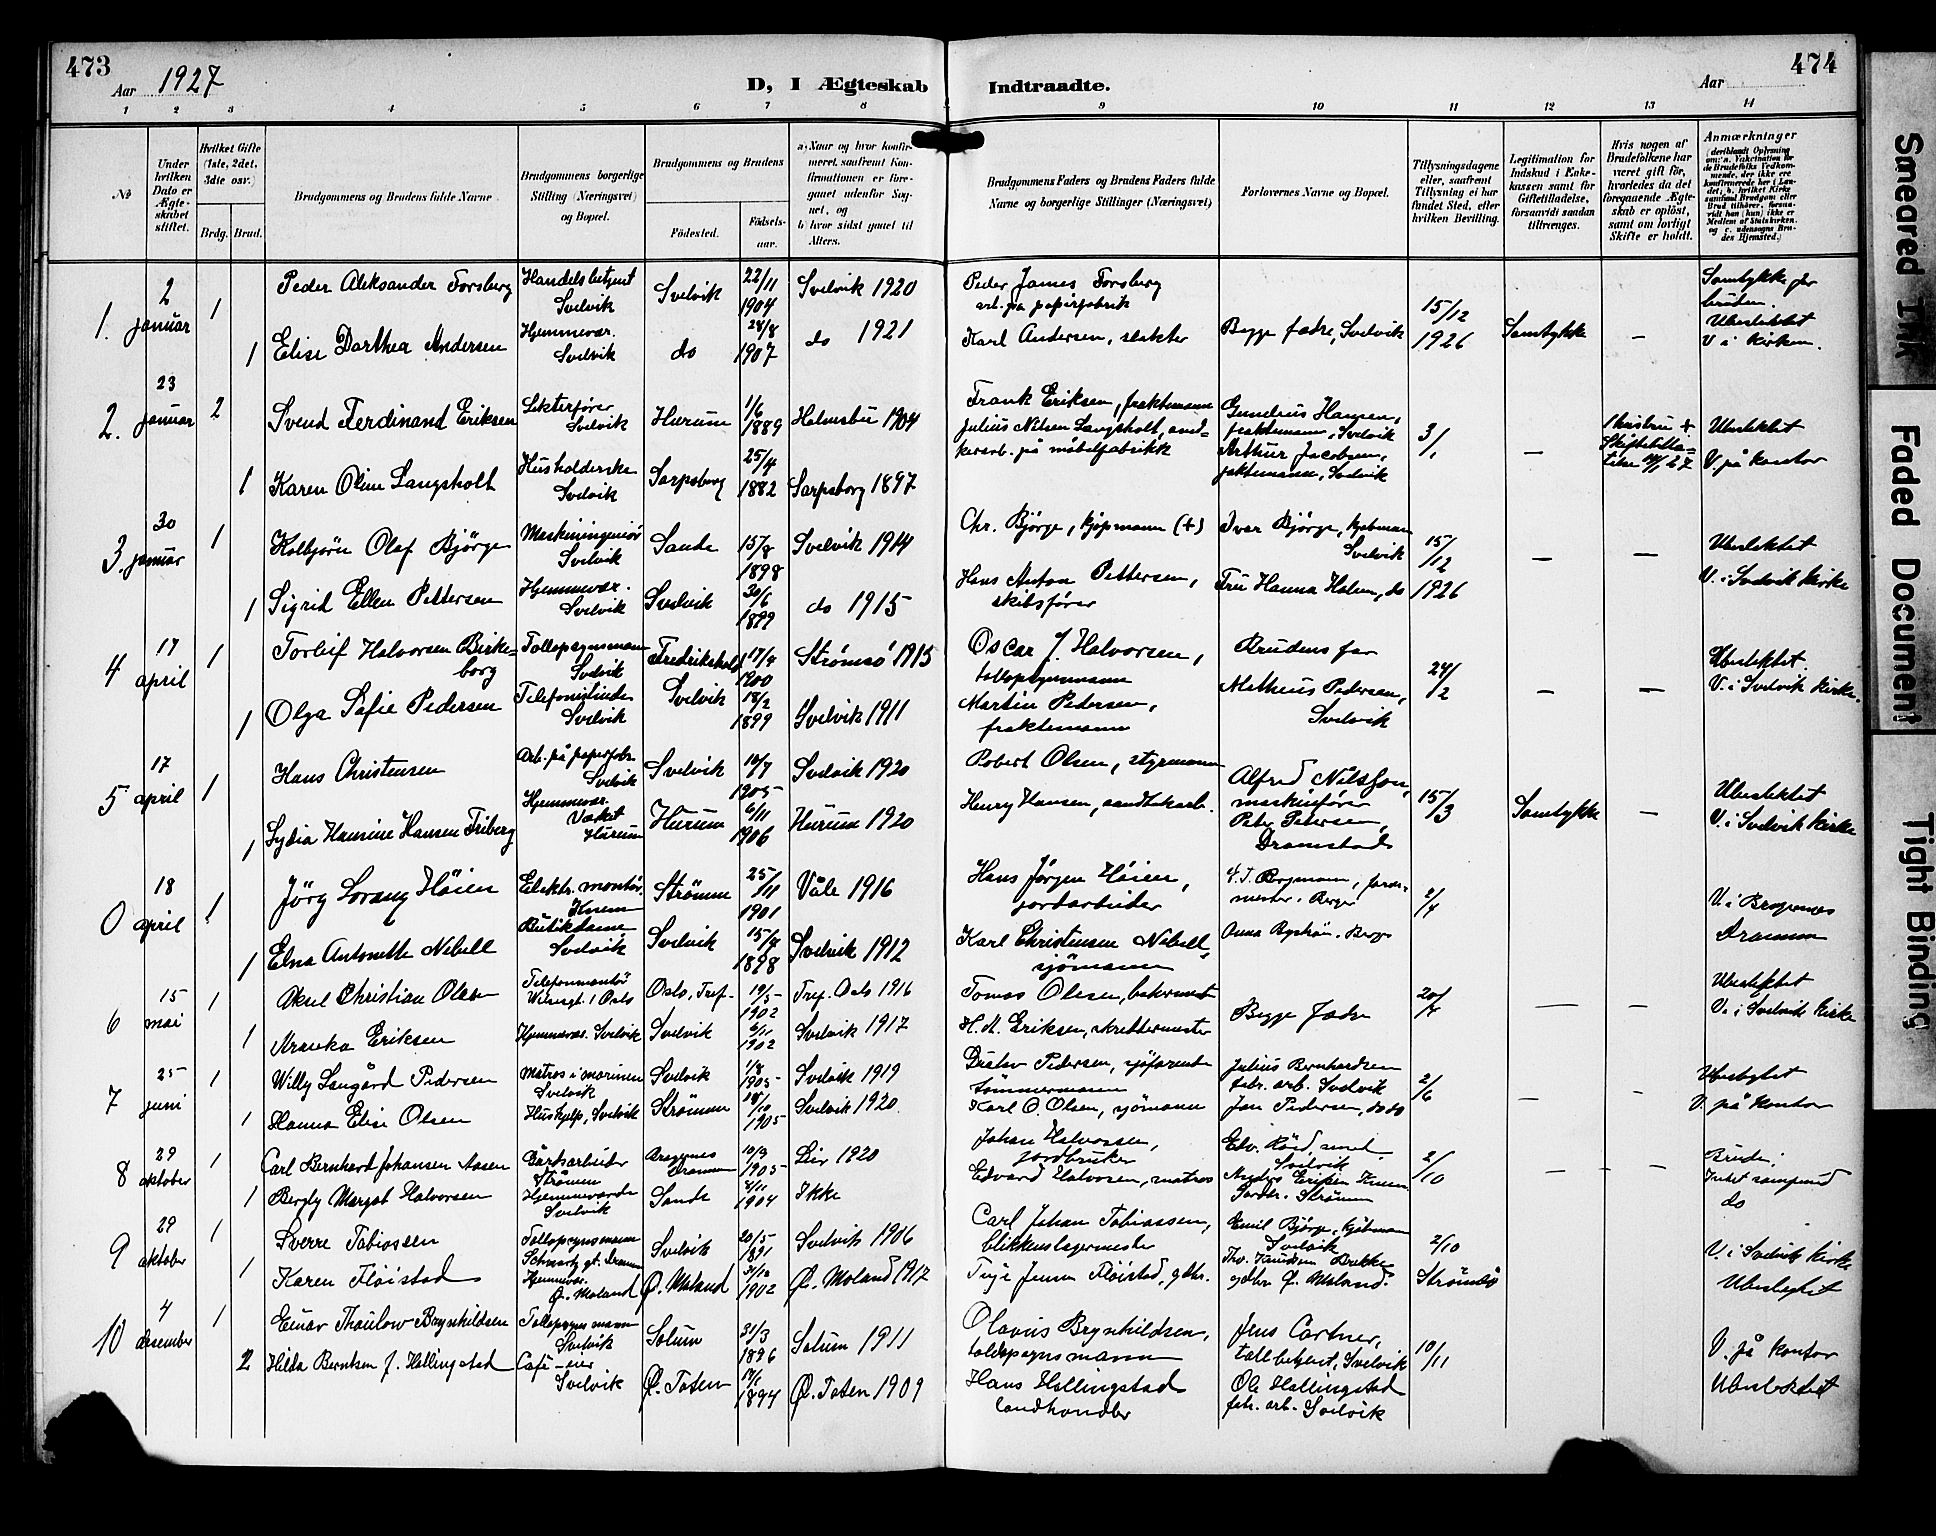 473
Aar 1927
D, I Ægteskab
Indtraadte.
Aar
474
1 2 3 4 5 6 7 8 9 10 11 12 13 14
No
Under hvilken Dato er Ægteskabet stiftet.
Hvilket Gifte (1ste, 2det, 3die osv.)
Brdg. Brud.
Brudgommens og Brudens fulde Navne.
Brudgommens borgerlige Stilling (Næringsvei) og Bopæl.
Brudgommens og Brudens
Fødested.
Fødselsaar.
a) Naar og hvor konfirmeret, saafremt Konfirmationen er foregaaet udenfor Sognet, og
b) hvor sidst gaaet til Alters.
Brudgommens Faders og Brudens Faders fulde Navne og borgerlige Stillinger (Næringsvei)
Forlovernes Navne og Bopæl.
Tillysningsdagene eller, saafremt Tillysning ei har fundet Sted, efter hvilken Bevilling.
Legitimation for Indskud i Enkekassen samt for Giftetilladelse, forsaavidt saadan tiltrænges.
Hvis nogen af Brudefolkene har været gift før, hvorledes da det foregaaende Ægteskab er opløst, samt om lovligt Skifte er holdt.
Anmærkninger
1. 2 januar 1 Peder Aleksander Forsberg Handelsbetjent Svelvik Svelvik 22/11 1904 Svelvik 1920 Peder James Forsberg arb. på papirfabrik 15/12 Samtykke for bruden.
1 Elise Dorthea Andersen Hjemmevær. Svelvik do 28/8 1907 do 1921 Karl Andersen, slakter Begge fædre, Svelvik 1926 Samtykke — Ubeslektet V i kirken.
2. 23 januar 2 Svend Ferdinand Eriksen Lekterfører Svelvik Hurum 1/6 1889 Holmsbu 1904 Frank Eriksen, fraktemann Gundrius Hansen, fraktemann, Svelvik 3/1 — Ubeslektet
1 Karen Oline Langsholt Husholderske Svelvik Sarpsborg 25/4 1882 Sarpsborg 1897 Julius Nilsen Langsholt, på møbelfabrikk Arthur Jacobsen, jaktemann, Svelvik V. på kontor
3. 30 januar 1 Kolbjørn Olaf Bjørge Maskiningeniør Svelvik Sande 15/8 1898 Svelvik 1914 Chr. Bjørge, kjøpmann (+) Ivar Bjørge, kjøbmann Svelvik 15/12 — — Ubeslektet
1 Sigrid Ellen Pettersen Hjemmevær. Svelvik Svelvik 30/6 1899 do 1915 Hans Anton Pettersen, skibsfører Fru Hanna Holm, do 1926 V. i Svelvik kirke
4 17 april 1 Torleif Halvorsen Birkeborg Tollopsynsmann Svelvik Fredrikshald 17/4 1900 Strømsø 1915 Oscar J. Halvorsen, tollopsynsmann Brudens far 24/2 — — Ubeslektet.
1 Olga Sofie Pedersen Telefonistinde Svelvik Svelvik 18/2 1899 Svelvik 1911 Martin Pedersen, fraktemann Matheus Pedersen, Svelvik V. i Svelvik kirke.
5 17 april 1 Hans Christensen Arb. på papirfabr. Svelvik Svelvik 10/7 1905 Svelvik 1920 Robert Olsen, styrmann Alfred Nilsson, maskinfører 15/3 Samtykke — Ubeslektet
1 Lydia Hansine Hansen Friberg Hjemmevær. Hurum Hurum 6/11 1906 Hurum 1920 Henry Hansen, sandtakarb. Peter Petersen, Dramstad V. i Svelvik kirke
0 18 april 1 Jörg Lorang Höien Elektr. montør Knem Strømm 25/11 1901 Våle 1916 Hans Jørgen Höien, jordarbeider 2/4 V. i Bragernes
1 Elna Antonette Nebell Butikdame Svelvik Svelvik 15/4 1898 Svelvik 1912 Karl Christensen Nebell, sjømann Drammen
6 15 mai 1 Aksel Christian Olsen Telefonmontør Oslo Oslo, Tref. 19/5 1902 Tref. Oslo 1916 Tomas Olsen, bakermest Begge fædre 20/4 — — Ubeslektet
1 Aranka Eriksen Hjemmevær. Svelvik Svelvik 6/11 1902 Svelvik 1917 H. M. Eriksen, skreddermester V. i Svelvik kirke
7 25 juni 1 Willy Langård Pedersen Matros i marinen Svelvik Svelvik 1/8 1905 Svelvik 1919 Gustav Pedersen, sjøfarende tømmermann Julius Bernhardsen fabr. arb. Svelvik 2/6 — — Ubeslektet
1 Hanna Elise Olsen Hushjelp, Svelvik Strømm 28/10 1905 Svelvik 1920. Karl O. Olsen, sjømann Jan Pedersen, do do V. på kontor
8 29 oktober 1 Carl Bernhard Johansen Aasen Strømm Bragernes Drammen 10/3 1905 Lier 1920 Johan Halvorsen, jordbruker Svelvik 2/10 — — —
1 Bergly Margot Halvorsen Hjemmeværende Svelvik Sande 4/11 1904 Ikke Edvard Halvorsen, matros Strømm do
9 29 oktober 1 Sverre Tobiassen Tollopsynsmann Svelvik 20/5 1891 Svelvik 1906 Carl Johan Tobiassen, blikkenslagermester Emil Bjørge, kjøbmann Svelvik 2/10 V. i Svelvik kirke
1 Karen Fløistad Hjemmevær. Ø. Moland Ø. Moland 31/12 1902 Ø. Moland 1917 Terje Jensen Fløistad, gbr. Tho. Knudsen Brekke gdbr Ø. Moland. Strømsø Ubeslegtet
10 4 desember 1 Einar Thaulow Brynhildsen Tollopsynsmann Svelvik Solum 31/3 1896 Solum 1911 Olavus Brynhildsen, toldopsynsmann Jens Cartner, tollbetjent, Svelvik 10/11 V. på kontor
2 Hilda Berntsen f. Hellingstad Café-eier Svelvik Ø. Toten 14/1 1894 Ø. Toten 1909 Hans Hellingstad landhandler Ole Hellingstad fabr. arb. Svelvik Ubeslektet
Smeared Ink
Faded Document
Tight Binding